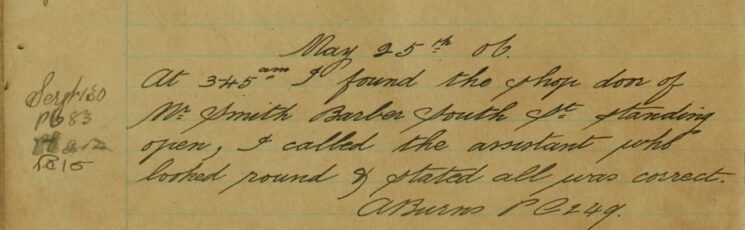 May 25th 06.
At 345am I found the shop door of
Mr Smith Barber South St standing
open, I called the assistant who
looked round & stated all was correct.
ABurns PC249.
Sergt 130
83
15